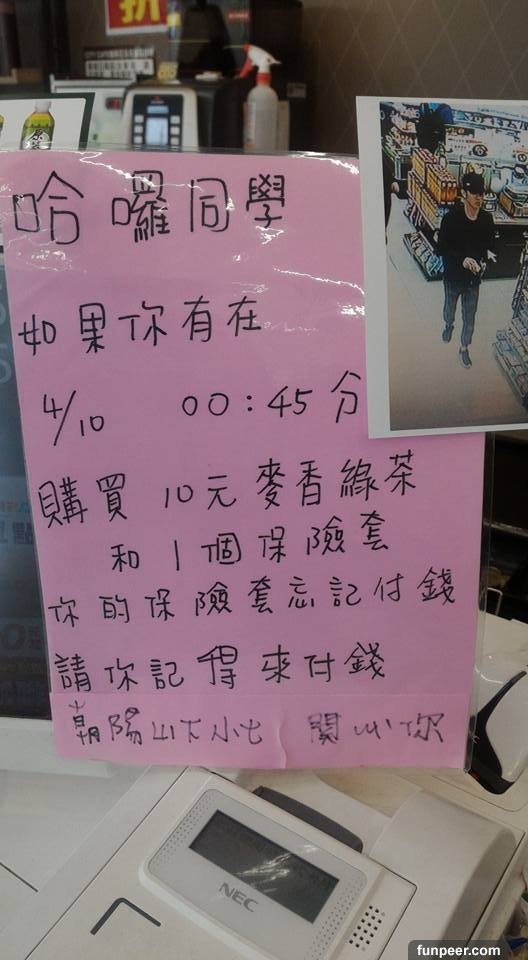 折
原茶
哈囉同學
如果你有在
4/10 00:45分
購買 10元麥香綠茶
和1個保險套
你的保險套忘記付錢
請你記得來付錢
朝陽山下小七 關心你
NEC
funpeer.com